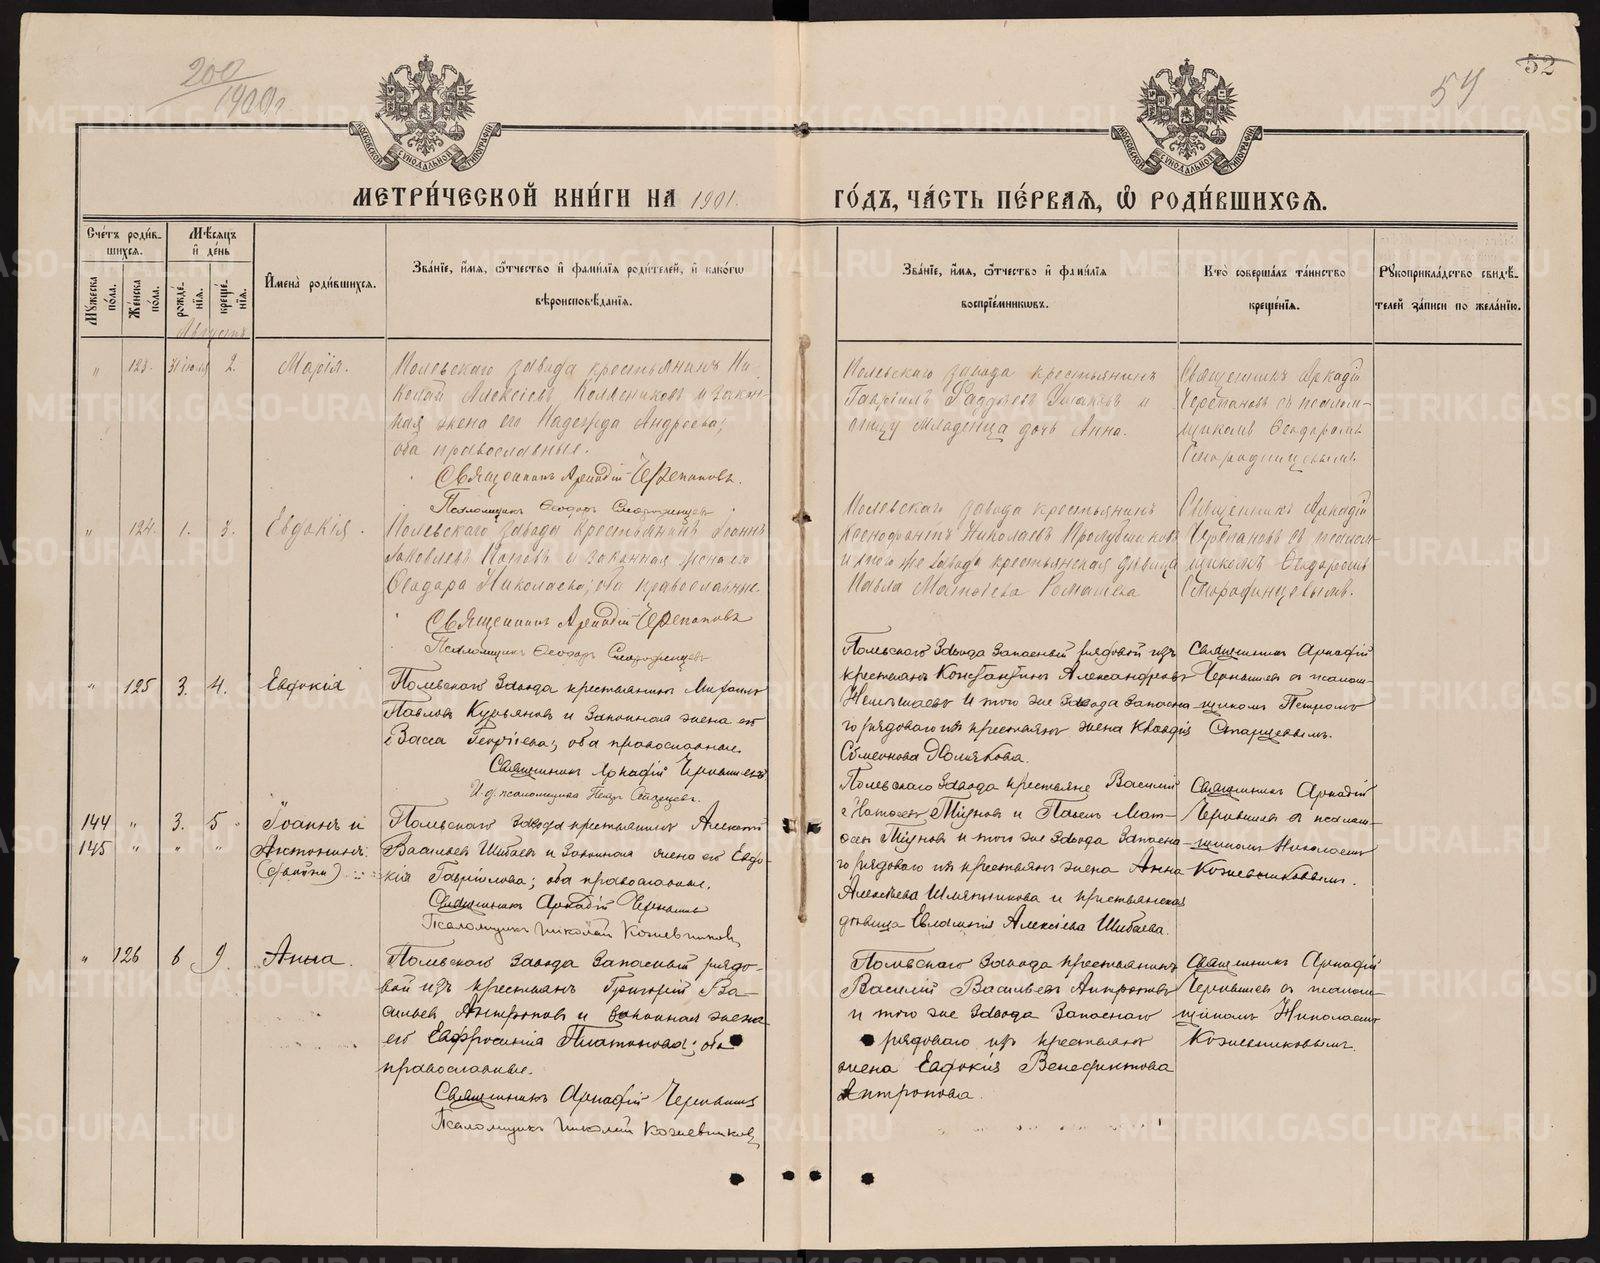 200
1900 г.
54
52
МОСКОВСКОЙ СѴНОДАЛЬНОЙ ТИПОГРАФІИ
МОСКОВСКОЙ СѴНОДАЛЬНОЙ ТИПОГРАФІИ
МЕТРИ́ЧЕСКОЙ КНИ́ГИ НА 1901.
ГО́ДЪ, ЧА́СТЬ ПЕ́РВАѦ, Ѡ҆ РОДИ́ВШИХСѦ.
Сче́тъ роди́в-
шихсѧ.
Мꙋжеска по́ла.
Же́нска по́ла.
Мѣ́сѧцъ
и҆ де́нь
рожде́-
нїѧ.
креще́-
нїѧ.
И҆мена̀ роди́вшихсѧ.
Зва́нїе, и҆́мѧ, ѻ҆́тчество и҆ фами́лїѧ роди́телей, и҆ како́гѡ
вѣроисповѣ́данїѧ.
Зва́нїе, и҆́мѧ, ѻ҆́тчество и҆ фами́лїѧ
воспрїе́мниковъ.
Кто̀ соверша́лъ та́инство
креще́нїѧ.
Рꙋкоприкла́дство свидѣ́-
телей за́писи по жела́нїю.
Августъ
" 123. 31 іюля 2. Марія.
Полевскаго завода крестьянинъ Ни-
колай Алексѣевъ Колясниковъ и закон-
ная жена его Надежда Андреева;
оба православные.
Священникъ Аркадій Черепановъ.
Псаломщикъ Ѳеодоръ
Полевскаго завода крестьянинъ
Гавріилъ Фаддѣевъ Ушаковъ и
отцу младенца дочь Анна.
Священникъ Аркадій
Черепановъ съ псалом-
щикомъ Ѳеодоромъ
" 124. 1. 3. Евдокія.
Полевскаго завода крестьянинъ Іоаннъ
Іаковлевъ Поповъ и законная жена его
Ѳеодора Николаева; оба православные.
Священникъ Аркадій Черепановъ
Псаломщикъ Ѳеодоръ
Полевскаго завода крестьянинъ
Ксенофонтъ Николаевъ
и того же завода крестьянская дѣвица
Павла Матвѣева Ромашева
Священникъ Аркадій
Черепановъ съ псалом-
щикомъ Ѳеодоромъ
" 125 3. 4. Евдокія
Полевскаго Завода крестьянинъ Михаилъ
Павловъ Курьяновъ и Законная жена его
Васса Георгіева; оба православные.
Священникъ Аркадій
И. д. псаломщика Петръ Старцевъ.
Полевского Завода Запасный рядовой изъ
крестьянъ Константинъ Александровъ
и того же Завода Запасна-
го рядового изъ крестьянъ жена Клавдія
Симеонова
Священникъ Аркадій
съ псалом-
щикомъ Петромъ
Старцевымъ.
144 " 3. 5 Іоаннъ и
145 " " " Антонинъ.
(двойни)
Полевского Завода крестьянинъ Алексѣй
Васильевъ Шибаевъ и Законная жена его Евдо-
кія Гавріилова; оба православные.
Священникъ Аркадій
Псаломщикъ Николай Кожевниковъ
Полевского Завода крестьяне Василій
и Павелъ Мат-
и того же Завода Запасна-
го рядового изъ крестьянъ жена Анна
Алексѣева Шляпникова и крестьянская
дѣвица Евлампія Алексіева Шибаева.
Священникъ Аркадій
съ псалом-
щикомъ Николаемъ
Кожевниковымъ.
" 126 6 9. Анна.
Полевского Завода Запасный рядо-
вой изъ крестьянъ Григорій Ва-
сильевъ Антроповъ и Законная жена
его Евфросинія Платонова; оба
православные.
Священникъ Аркадій
Псаломщикъ Николай Кожевниковъ
Полевского Завода крестьянинъ
Василій Васильевъ Антроповъ
и того же Завода Запаснаго
рядоваго изъ крестьянъ
жена Евдокія Венедиктова
Антропова.
Священникъ Аркадій
съ псалом-
щикомъ Николаемъ
Кожевниковымъ.
METRIKI.GASO-URAL.RU